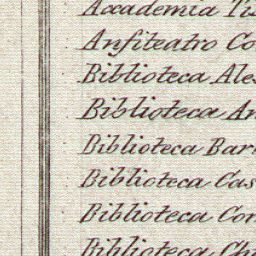 Accademia Ti
Anfiteatro Co
Biblioteca Ales
Biblioteca An
Biblioteca Bar
Biblioteca Cas
Biblioteca Cor
Biblioteca Chi